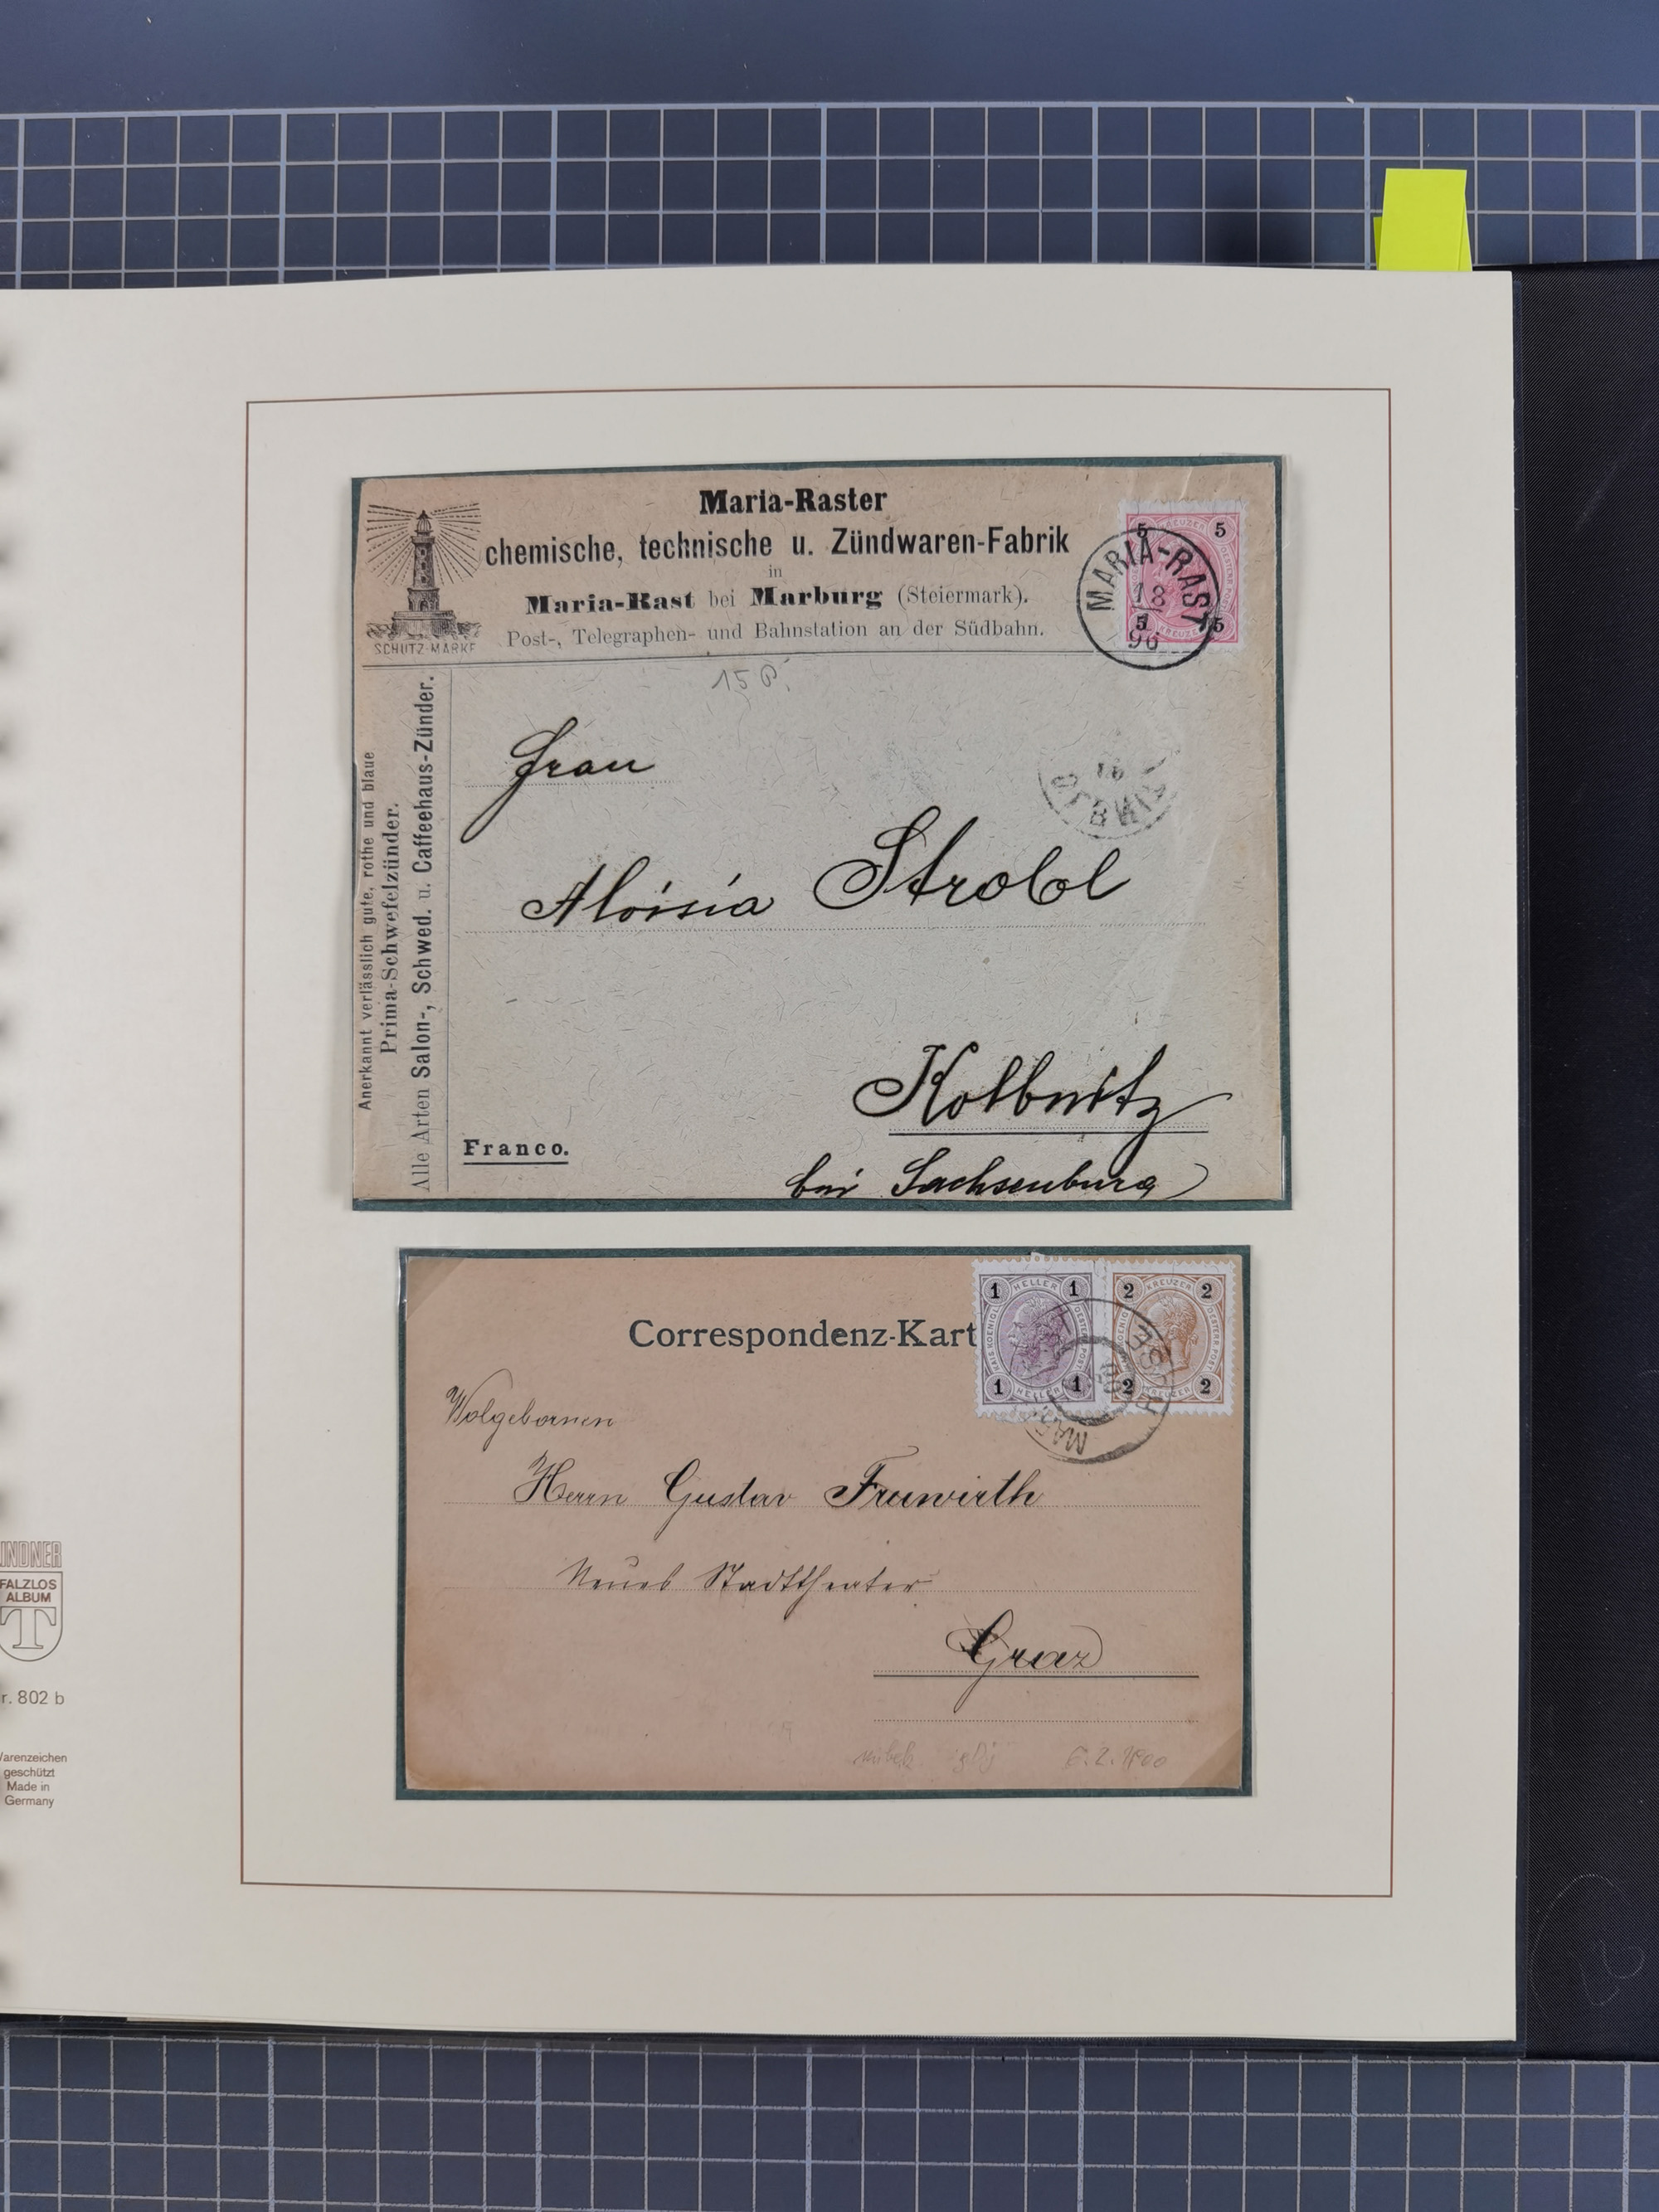 Maria-Raster
chemische, technische u. Zündwaren-Fabrik
in
Maria-Rast bei Marburg (Steiermark).
Post-, Telegraphen- und Bahnstation an der Südbahn.
SCHUTZ-MARKE
5 KREUZER 5
5 KREUZER 5
MARIA-RAST
18
5
96
Anerkannt verlässlich gute, rothe und blaue
Prima-Schwefelzünder.
Alle Arten Salon-, Schwed. u. Caffeehaus-Zünder.
Frau
Aloisia Strobl
Kolbnitz
bei Sachsenburg
Franco.
Correspondenz-Kart
1 HELLER 1
1 HELLER 1
2 KREUZER 2
2 KREUZER 2
Wolgebornen
Herrn Gustav Fruwirth
Neues Stadttheater
Graz
6.2.1900
LINDNER
FALZLOS
ALBUM
T
r. 802 b
arenzeichen
geschützt
Made in
Germany